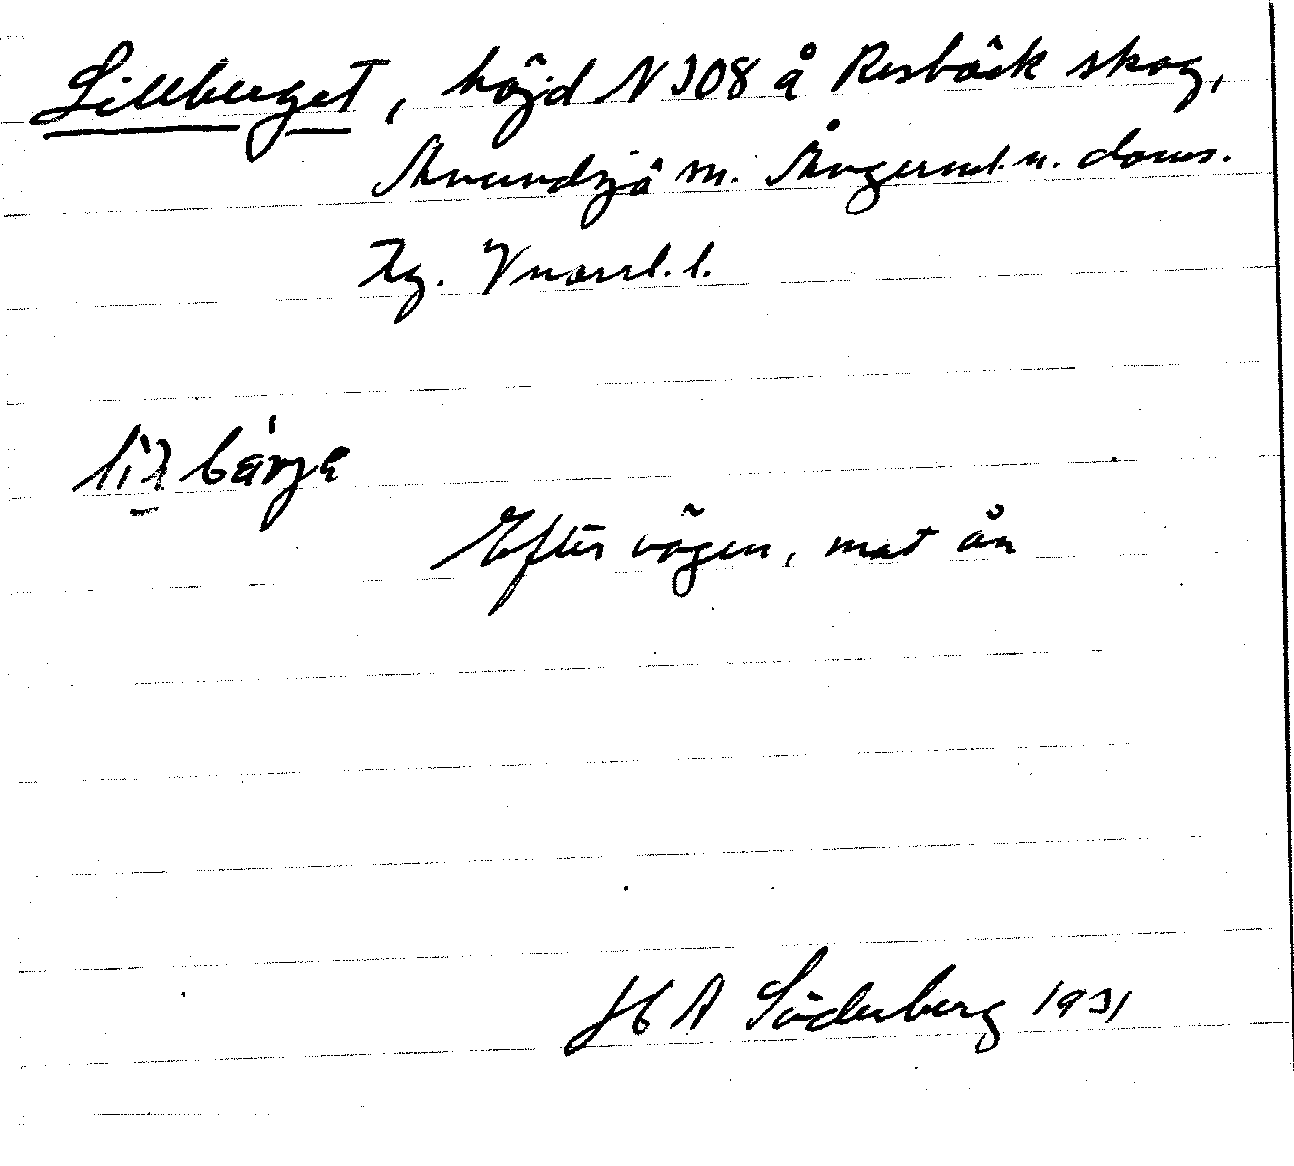 Lillberget, höjd N 308 å Resbäck skog,
Anundsjö sn. Ångermel. n. doms.
Tg. Vnorrl. l.
bärje
Efter vägen, mot ån
H A Söderberg 1931